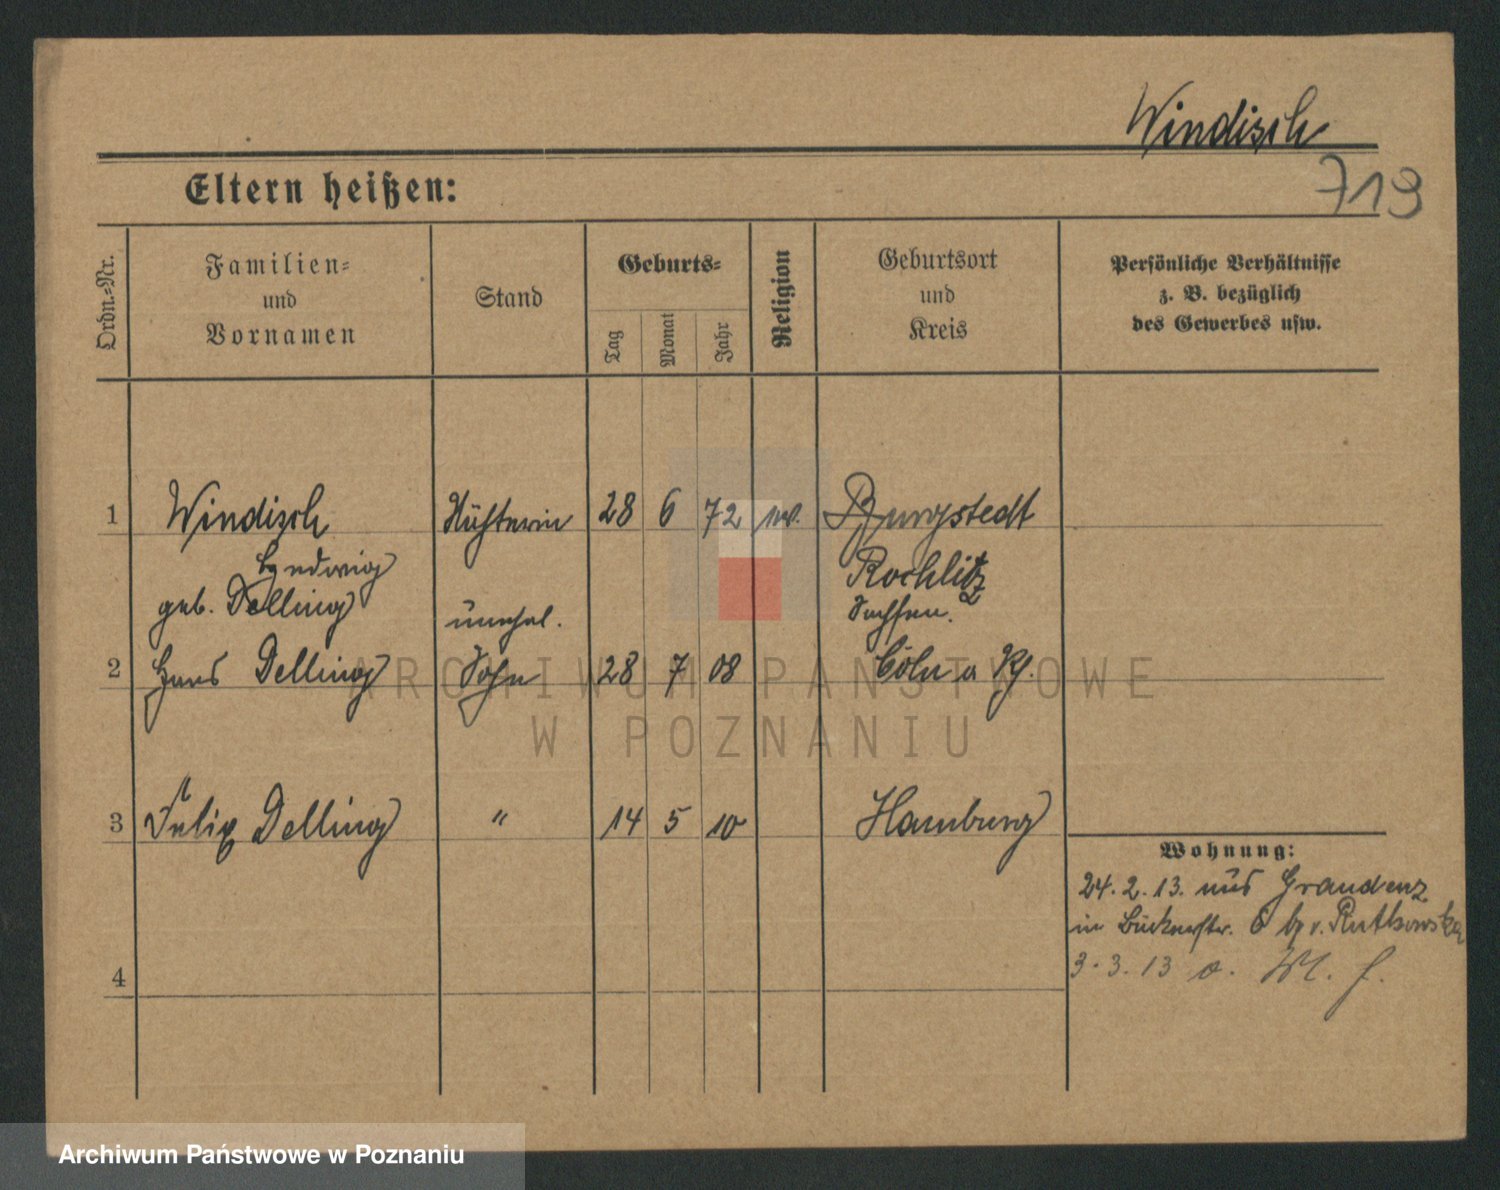 Windisch
719
Eltern heißen:
Ordn.=Nr.
Familien=
und
Vornamen
Stand
Geburts=
Tag
Monat
Jahr
Religion
Geburtsort
und
Kreis
Persönliche Verhältnisse
z. B. bezüglich
des Gewerbes usw.
1 Windisch 28 6 72 Burgstedt
Hedwig Rochlitz
geb. Delling unehel. Sachsen.
2 Hans Delling Sohn 28 7 08 Cöln a Rh.
3 Felix Delling " 14 5 10 Hamburg
4
Wohnung:
24. 2. 13. aus Graudenz
in Bückerstr. 6 b. v. Rutkowska
3. 3. 13
ARCHIWUM PAŃSTWOWE
W POZNANIU
Archiwum Państwowe w Poznaniu